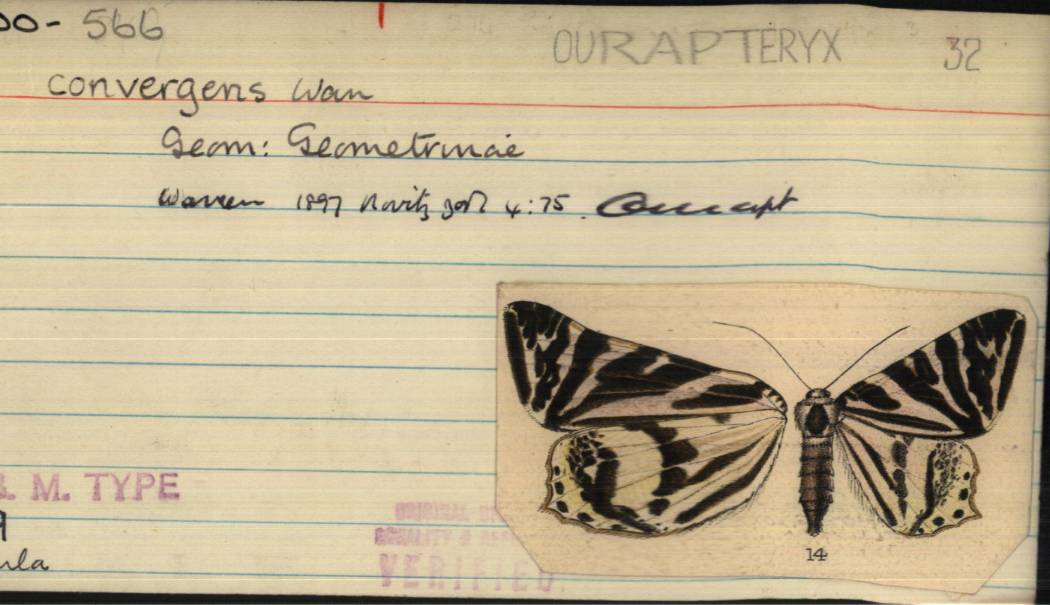 00- 566
OURAPTERYX 32
convergens Warr
Geom: Geometrinae
Warren 1897 Novit zool 4:75.
B. M. TYPE
ula
ORIGINAL
VERIFIED.
14